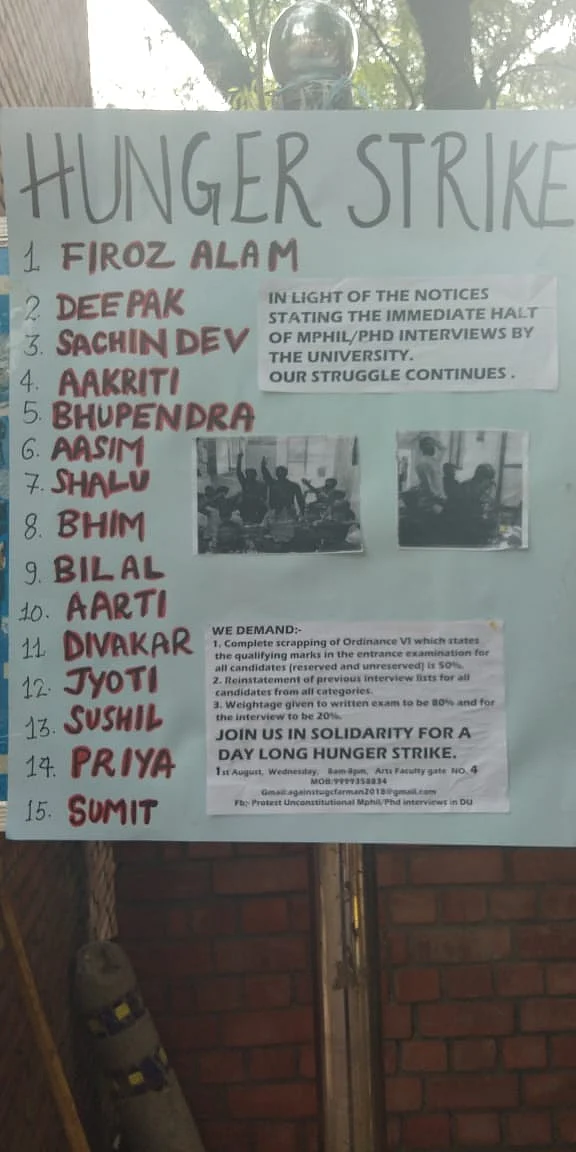 HUNGER STRIKE
1 FIROZ ALAM
2 DEEPAK
3. SACHIN DEV
4. AAKRITI
5. BHUPENDRA
6. AASIM
7. SHALU
8. BHIM
9. BILAL
10. AARTI
11 DIVAKAR
12. JYOTI
13. SUSHIL
14. PRIYA
15. SUMIT
IN LIGHT OF THE NOTICES
STATING THE IMMEDIATE HALT
OF MPHIL/PHD INTERVIEWS BY
THE UNIVERSITY.
OUR STRUGGLE CONTINUES .
WE DEMAND:-
1. Complete scrapping of Ordinance VI which states
the qualifying marks in the entrance examination for
all candidates (reserved and unreserved) is 50%.
2. Reinstatement of previous interview lists for all
candidates from all categories.
3. Weightage given to written exam to be 80% and for
the interview to be 20%.
JOIN US IN SOLIDARITY FOR A
DAY LONG HUNGER STRIKE.
1st August, Wednesday, 8am-8pm, Arts Faculty gate NO. 4
MOB:9999358834
Gmail:againstugcfarman2018@gmail.com
Fb:- Protest Unconstitutional Mphil/Phd interviews in DU